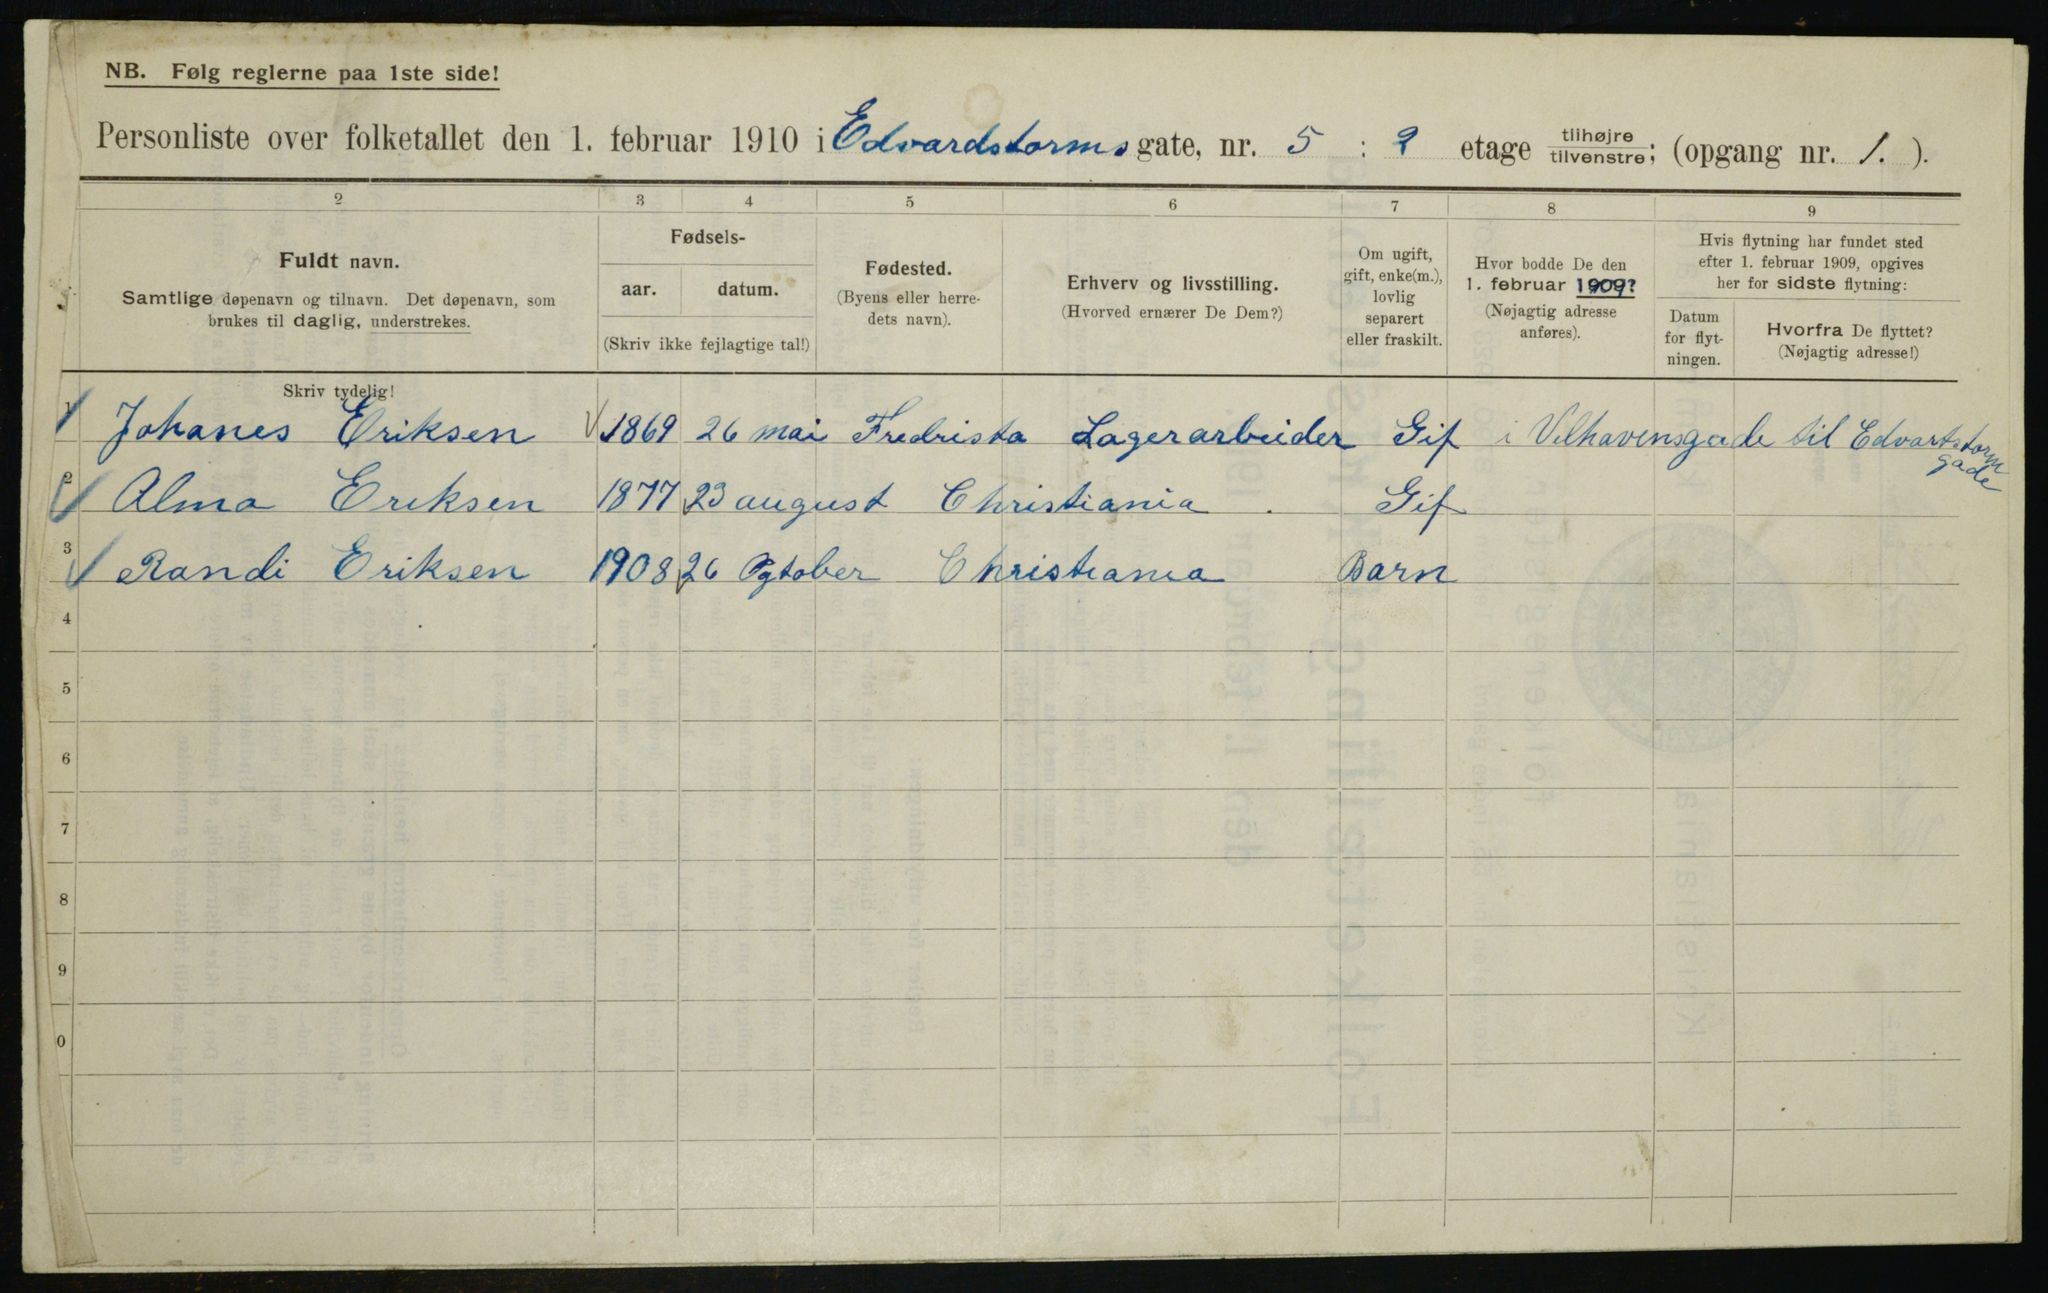 NB. Følg reglerne paa 1ste side!
Personliste over folketallet den 1. februar 1910 i Edvardstorms gate, nr. 5 : 2 etage tilhøjre tilvenstre; (opgang nr. 1. ).
2 3 4 5 6 7 8 9
Fuldt navn.
Samtlige døpenavn og tilnavn. Det døpenavn, som
brukes til daglig, understrekes.
Skriv tydelig!
Fødsels-
aar. datum.
(Skriv ikke fejlagtige tal!)
Fødested.
(Byens eller herre-
dets navn).
Erhverv og livsstilling.
(Hvorved ernærer De Dem?)
Om ugift,
gift, enke(m.),
lovlig
separert
eller fraskilt.
Hvor bodde De den
1. februar 1909?
(Nøjagtig adresse
anføres).
Hvis flytning har fundet sted
efter 1. februar 1909, opgives
her for sidste flytning:
Datum
for flyt-
ningen.
Hvorfra De flyttet?
(Nøjagtig adresse!)
1 Johanes Eriksen 1869 26 mai Fredrista Lagerarbeider Gif i Velhavensgade til Edvartstorm
gade
2 Alma Eriksen 1877 23 august Christiania . Gif
3 Randi Eriksen 1908 26 Ogtober Christiania Barn
4
5
6
7
8
9
0